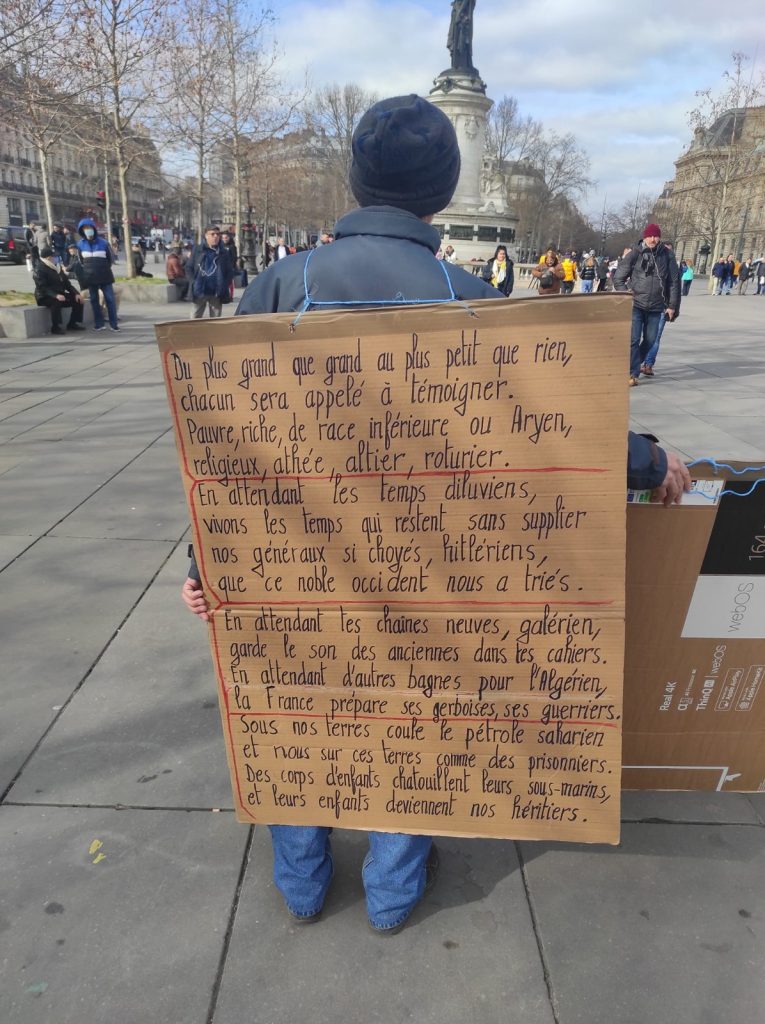 Du plus grand que grand au plus petit que rien,
chacun sera appelé à témoigner.
Pauvre, riche, de race inférieure ou Aryen,
religieux, athée, altier, roturier.
En attendant les temps diluviens,
vivons les temps qui restent sans supplier
nos généraux si choyés, hitlériens,
que ce noble occident nous a triés.
En attendant tes chaînes neuves, galérien,
garde le son des anciennes dans tes cahiers.
En attendant d'autres bagnes pour l'Algérien,
la France prépare ses gerboises, ses guerriers.
Sous nos terres coule le pétrole saharien
et nous sur ces terres comme des prisonniers.
Des corps d'enfants chatouillent leurs sous-marins,
et leurs enfants deviennent nos héritiers.
164
webOS
Real 4K
ThinQ AI webOS